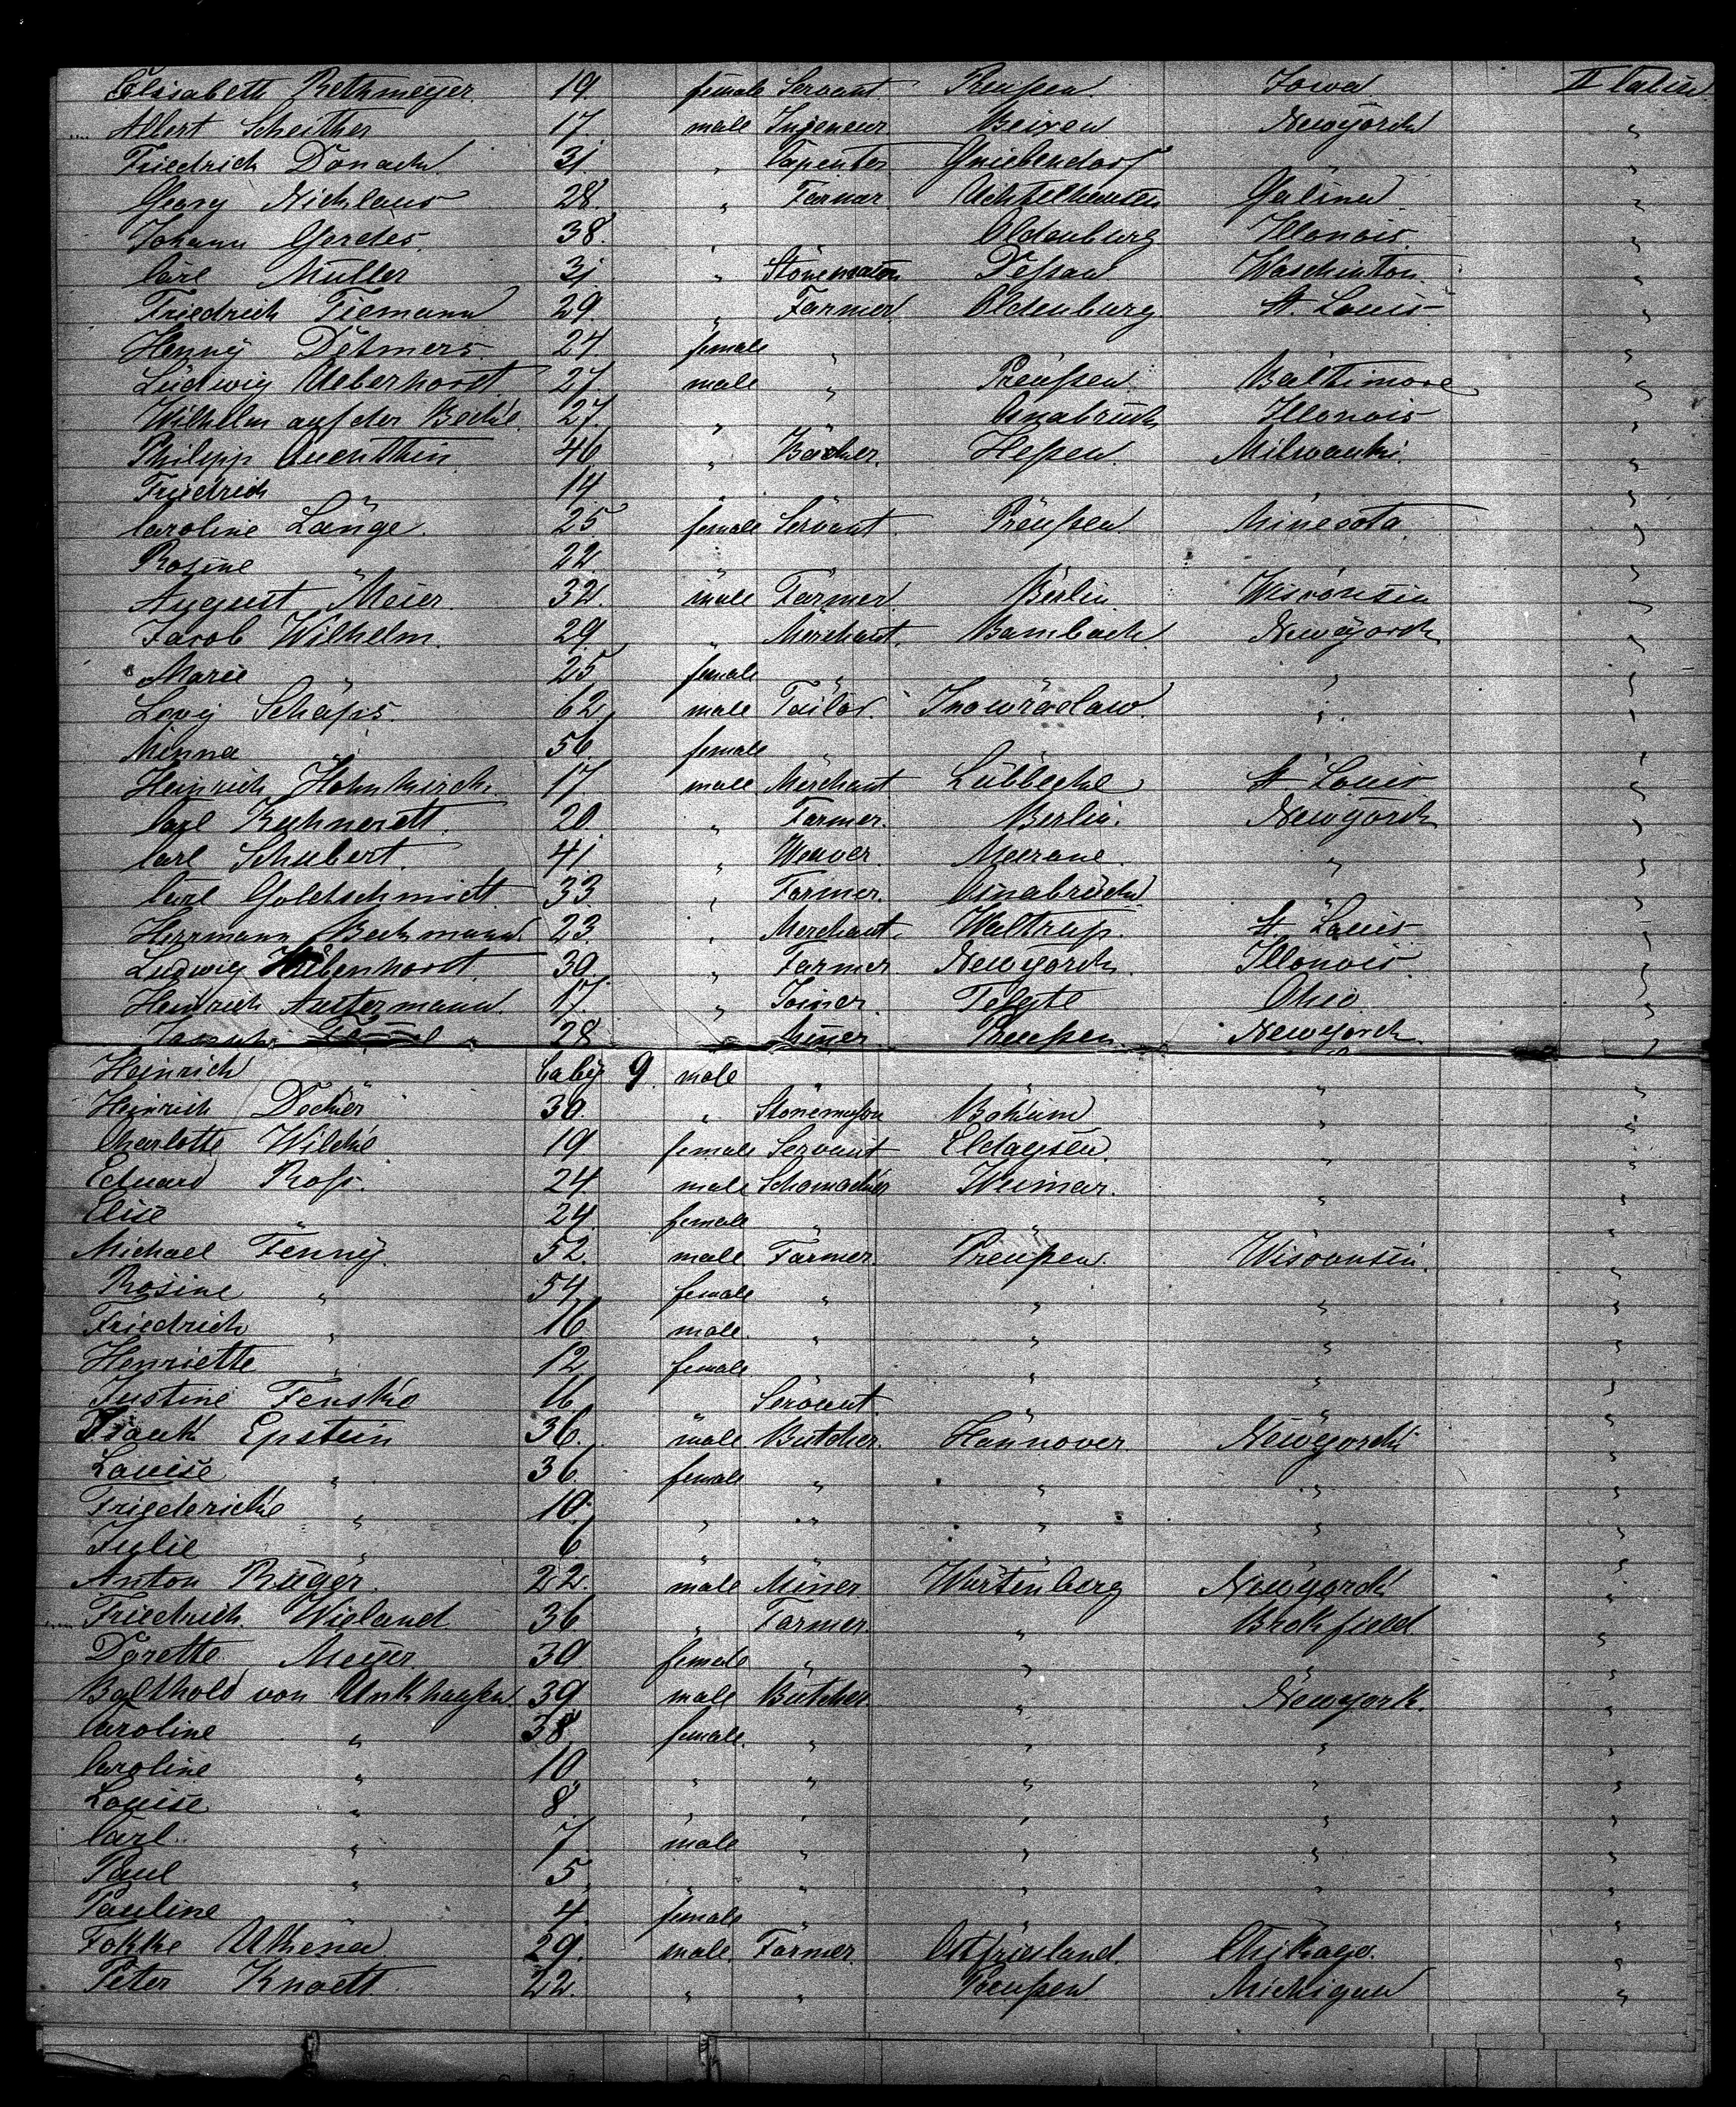 Elisabett Rethmeyer. 19. female Servant. Preußen. Iowa II Cabin
Albert Scheither 17. male Ingeneur Beiren Newyorck "
Friedrich Donach. 31. " Capenter Grieberdorf "
Georg Nicklaus 28. " Farmer. Uchtelhausen Galina "
Johann Gerdes. 38. " Oldenburg Illonois. "
Carl Müller 31 " Stonematon Deßau Waschinton. "
Friedrich Tiemann 29 " Farmer. Oldenburg St. Louis. "
Henny Detmers. 24. female " "
Ludwig Ueberhorst 27. male " Preußen Baltimore "
Wilhelm auf der Becke. 27. " Osnabrück Illonois "
Philipp Quenthin 46 " Bäcker. Heßen. Milwauki. "
Friedrich " 14 "
Caroline Lange. 25 female Servant. Preußen. Minesota "
Rosine " 22. " "
August Meier. 32. male Farmer. Berlin. Wisconsin "
Jacob Wilhelm. 29. " Merchant. Bambach Newyorck "
Marie " 25 female " " "
Levy Schäps. 62. male Tailor. Inowraclaw. " "
Minna " 56. female " "
Heinrich Hohnkirch. 17 male Merchant Lübbecke St. Louis "
Carl Kuhnerett. 20. " Farmer. Berlin. Newyorck "
Carl Schubert. 41. " Weaver. Meerane. " "
Carl Goldschmidt. 33. " Farmer. Osnabrück. " "
Herrmann Beckmann. 23. " Merchant. Waltrup. St. Louis "
Ludwig 30. " Farmer Newyorck. Illonois. "
Heinrich Austermann. 17. " Joiner. Telgte Ohio "
28. " Miner. Preußen. Newyorck. "
Heinrich baby 9. male " "
Heinrich Decker 30. " Stonemason Bochum " "
Charlotte Wilcke 19 female Servant Eldagsen. " "
Eduard Roß. 24. male Schomacker Weimar. " "
Elise " 24. female " " "
Michael Fenny. 52. male Farmer. Preußen. Wisconsin. "
Rosine " 54. female " " " "
Friedrich " 16 male. " " " "
Henriette " 12 female " " "
Justine Fenske 16. " Servant. " " "
Frank Epstein 36. male Butcher. Hannover. Newyorck "
Louise " 36. female " " " "
Friedericke " 10. " " " " "
Julie " 6 " "
Anton Rüger. 22. male Miner Würtenberg Newyorck "
Friedrich. Wieland 36 " Farmer. " Brokfield "
Dorette Meyer. 30 female " " " "
Balthold von Unkhaußen. 39 male Butcher " Newyork. "
Caroline " 38. female. " " " "
Caroline " 10. " " " " "
Louise " 8. " " " " "
Carl " 7 male " " " "
Paul " 5. " " " " "
Pauline " 4. female " "
Fokke Ukena 29. male. Farmer. Ostfriesland. Chikago. "
Peter Knoett. 22. " " Preußen Michigan "